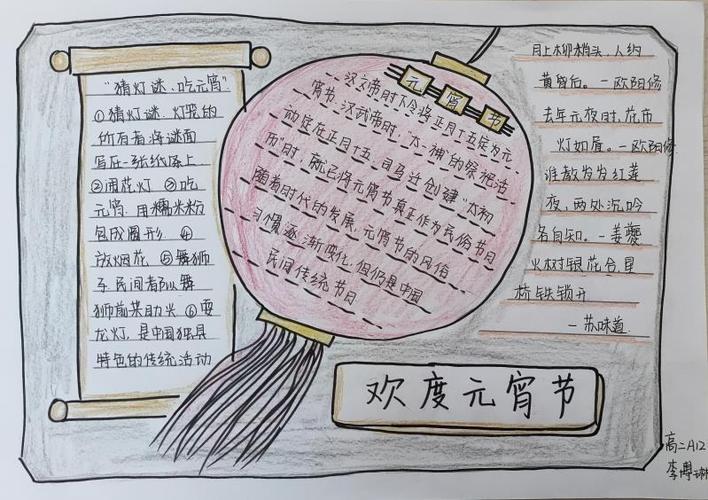 "猜灯谜、吃元宵"
①猜灯谜,灯笼的
所有者将谜面
写在一张纸条上
②闹花灯 ③吃
元宵,用糯米粉
包成圆形 ④
放烟花 ⑤舞狮
子,民间者队舞
狮前来助兴 ⑥耍
龙灯,是中国独具
特色的传统活动
元宵节
汉文帝时下令将正月十五定为元
宵节,汉武帝时,"太一神"的祭祀活
动定在正月十五,司马迁创建"太初
历"时,就已将元宵节真正作为民俗节日
随着时代的发展,元宵节的风俗
习惯逐渐变化,但仍是中国
民间传统节日
月上柳梢头,人约
黄昏后。-欧阳修
去年元夜时,花市
灯如昼。-欧阳修
谁教岁岁红莲
夜,两处沉吟
各自知。-姜夔
火树银花合星
桥铁锁开
-苏味道
欢度元宵节
高二A12
李博琳